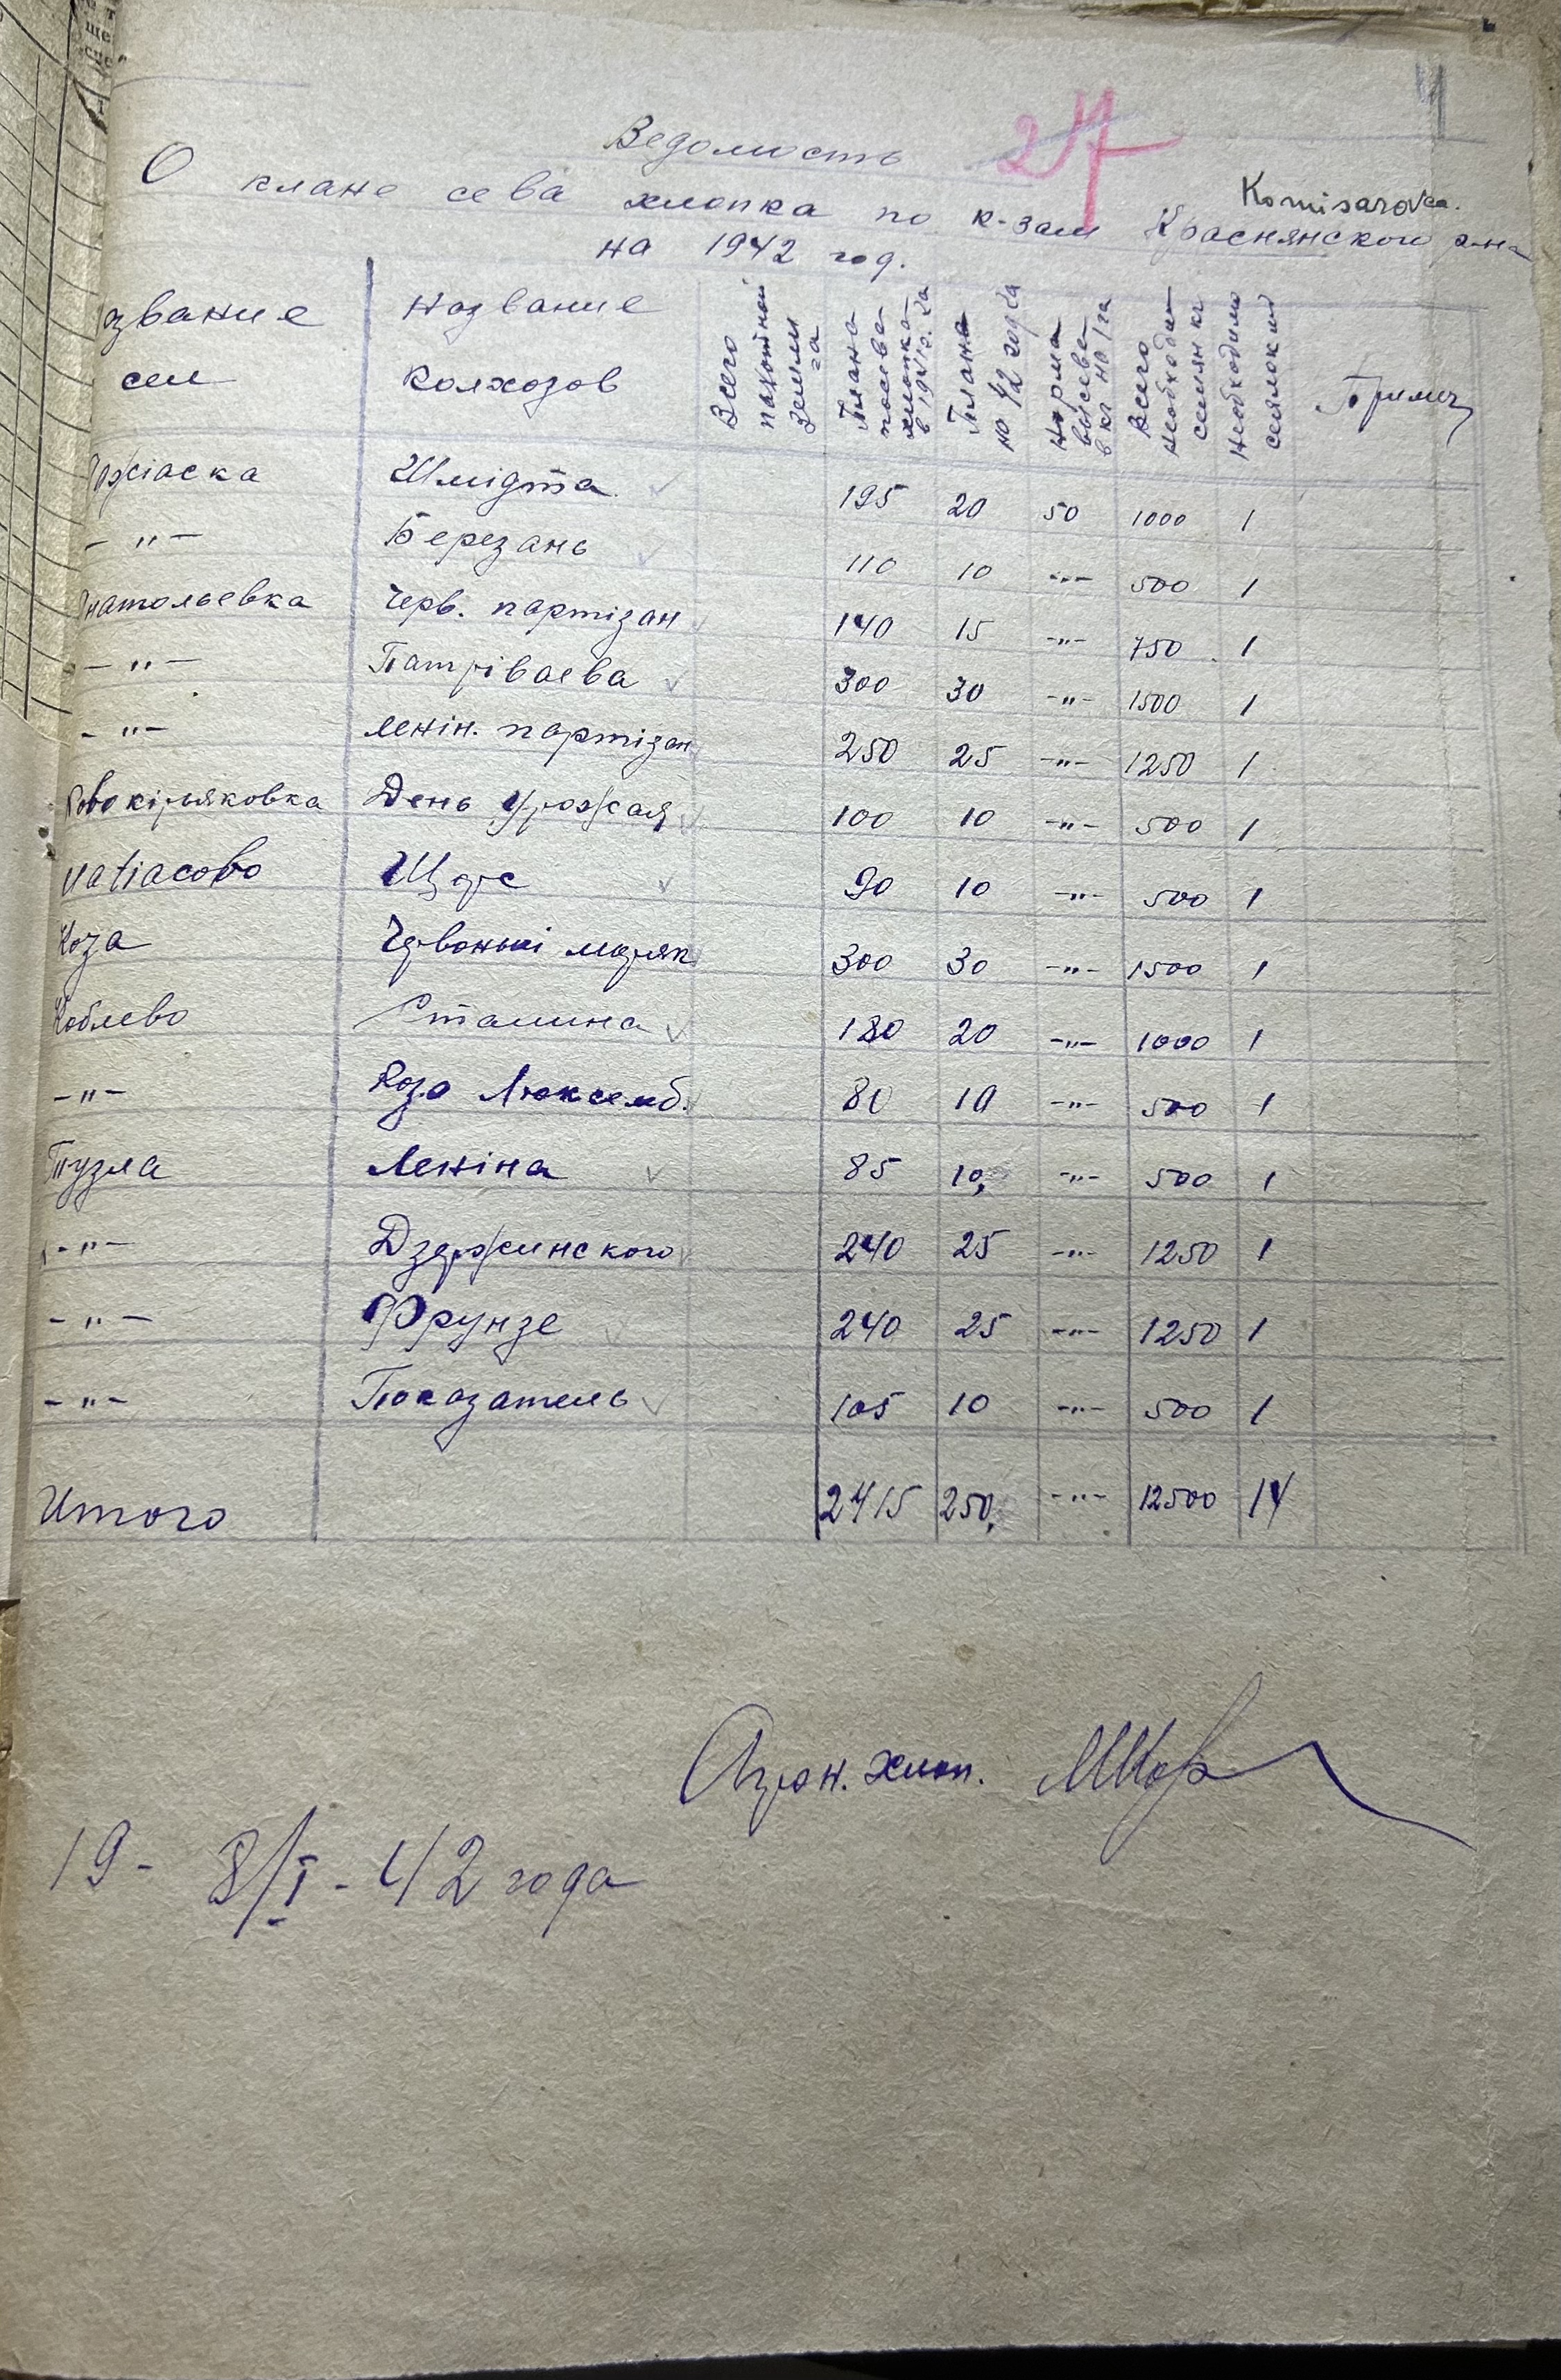 27
Ведомость
О плане сева хлопка по к-зам Краснянского р-на
Komisarovca.
на 1942 год.
звание сел | Название Колхозов | Всего пахотной земли га | План посева хлопка в 1941 г. га | План на 42 год га | Норма высева в кг на 1 га | Всего необходим семян кг | Необходимо сеялок шт | Примеч
Шмідта 195 20 50 1000 1
-"- Березань 110 10 -"- 500 1
натольевка Черв. партізан 140 15 -"- 750 1
-"- Патріваева 300 30 -"- 1500 1
-"- Ленін. партізан 250 25 -"- 1250 1
Новокірьяковка День Урожая 100 10 -"- 500 1
Щорс 90 10 -"- 500 1
Коза Червоныі моряк 300 30 -"- 1500 1
Коблево Сталина 180 20 -"- 1000 1
-"- Роза Люксемб. 80 10 -"- 500 1
Тузла Леніна 85 10, -"- 500 1
-"- Дзержинского 240 25 -"- 1250 1
-"- Фрунзе 240 25 -"- 1250 1
-"- Показатель 105 10 -"- 500 1
Итого 2415 250, -"- 12500 14
Агрон. хлоп.
19- 8/I - 42 года